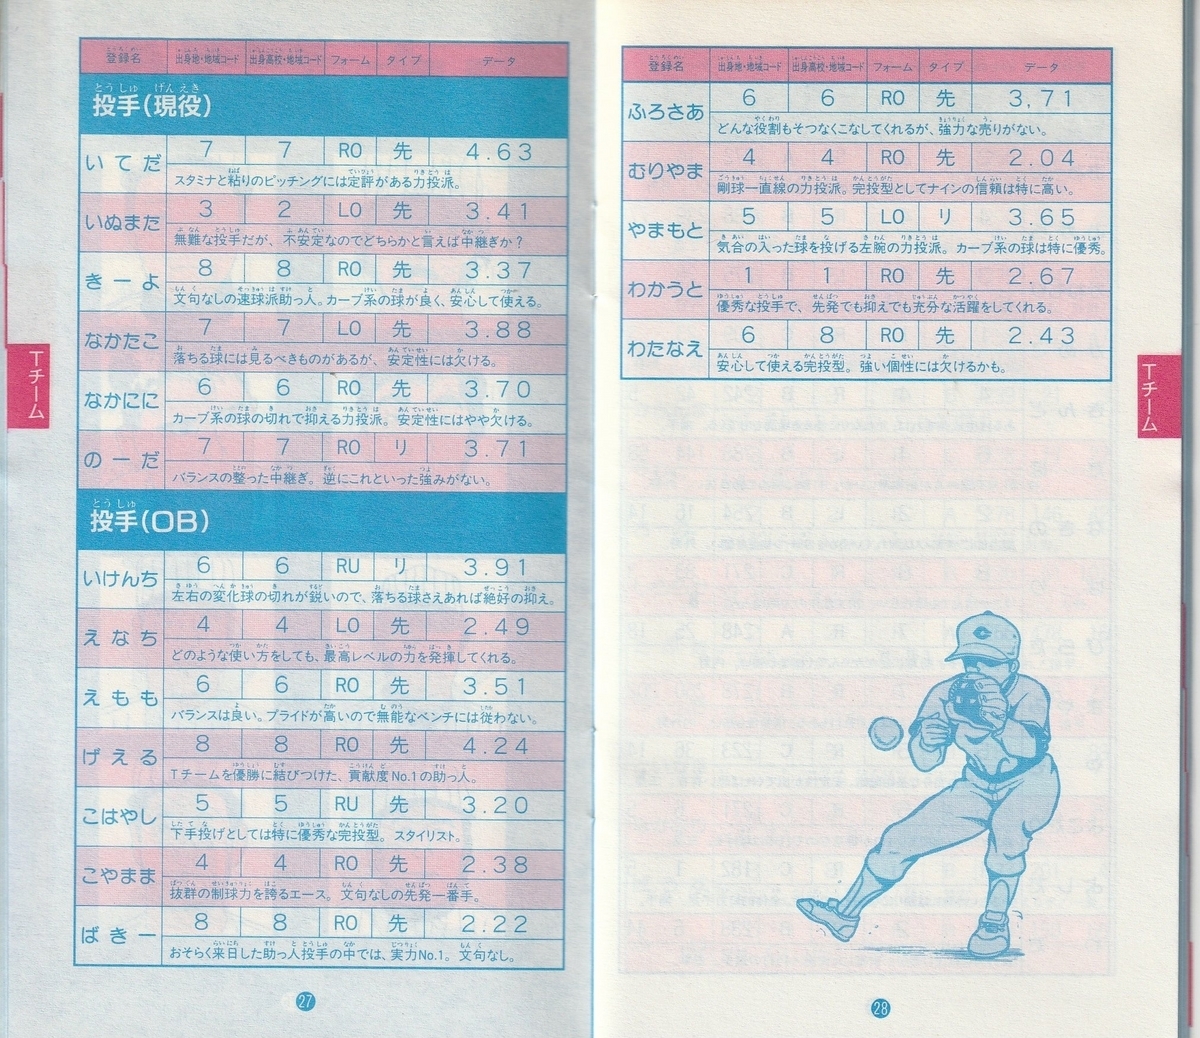 登録名 出身地・地域コード 出身高校・地域コード フォーム タイプ データ
投手(現役)
いてだ 7 7 RO 先 4.63
スタミナと粘りのピッチングには定評がある力投派。
いぬまた 3 2 LO 先 3.41
無難な投手だが、不安定なのでどちらかと言えば中継ぎか?
きーよ 8 8 RO 先 3.37
文句なしの速球派助っ人。カーブ系の球が良く、安心して使える。
なかたこ 7 7 LO 先 3.88
落ちる球には見るべきものがあるが、安定性には欠ける。
なかにに 6 6 RO 先 3.70
カーブ系の球の切れで抑える力投派。安定性にはやや欠ける。
のーだ 7 7 RO リ 3.71
バランスの整った中継ぎ。逆にこれといった強みがない。
投手(OB)
いけんち 6 6 RU リ 3.91
左右の変化球の切れが鋭いので、落ちる球さえあれば絶好の抑え。
えなち 4 4 LO 先 2.49
どのような使い方をしても、最高レベルの力を発揮してくれる。
えもも 6 6 RO 先 3.51
バランスは良い。プライドが高いので無能なベンチには従わない。
げえる 8 8 RO 先 4.24
Tチームを優勝に結びつけた、貢献度No.1の助っ人。
こはやし 5 5 RU 先 3.20
下手投げとしては特に優秀な完投型。スタイリスト。
こやまま 4 4 RO 先 2.38
抜群の制球力を誇るエース。文句なしの先発一番手。
ばきー 8 8 RO 先 2.22
おそらく来日した助っ人投手の中では、実力No.1。文句なし。
Tチーム
27
登録名 出身地・地域コード 出身高校・地域コード フォーム タイプ データ
ふろさあ 6 6 RO 先 3,71
どんな役割もそつなくこなしてくれるが、強力な売りがない。
むりやま 4 4 RO 先 2.04
剛球一直線の力投派。完投型としてナインの信頼は特に高い。
やまもと 5 5 LO リ 3.65
気合の入った球を投げる左腕の力投派。カーブ系の球は特に優秀。
わかうと 1 1 RO 先 2.67
優秀な投手で、先発でも抑えでも充分な活躍をしてくれる。
わたなえ 6 8 RO 先 2.43
安心して使える完投型。強い個性には欠けるかも。
Tチーム
28